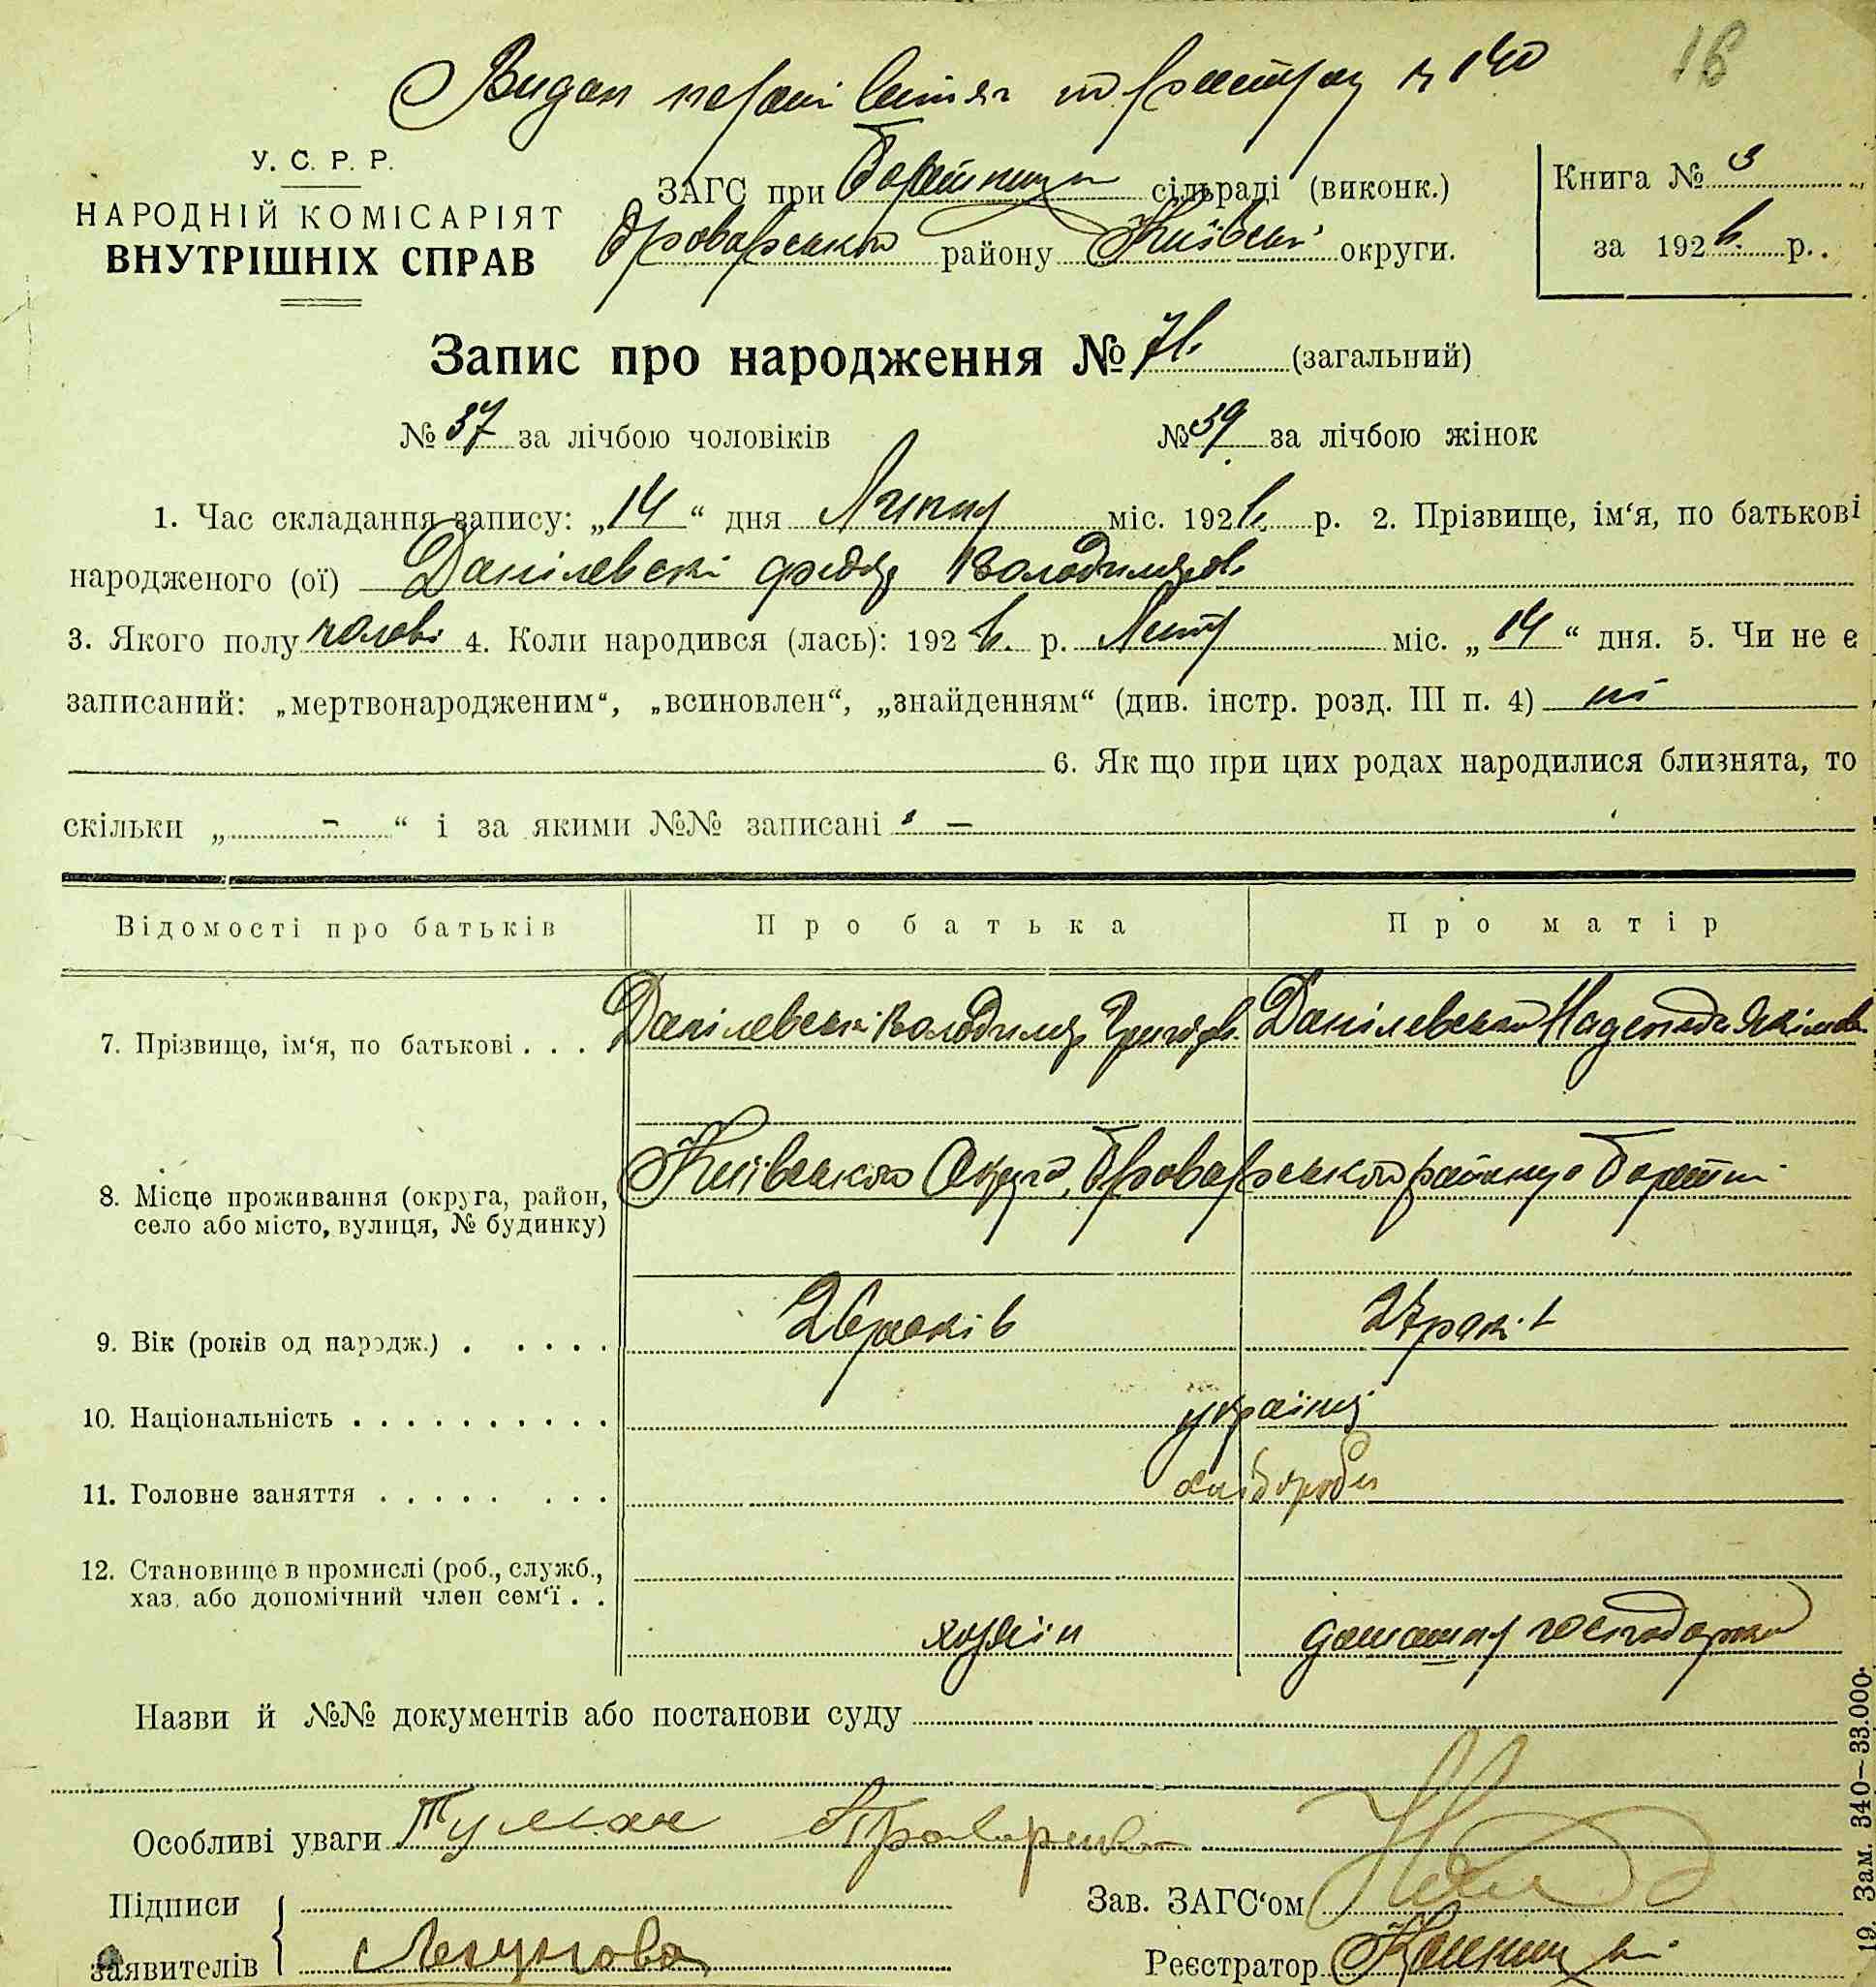 Видан
16
У. С. Р. Р.
НАРОДНІЙ КОМІСАРІЯТ
ВНУТРІШНІХ СПРАВ
ЗАГС при сільраді (виконк.)
Броварського району Київської округи.
Книга № 3
за 1926 р.
Запис про народження № 76 (загальний)
№ 37 за лічбою чоловіків № 39 за лічбою жінок
1. Час складання запису: „14“ дня Липня міс. 1926 р. 2. Прізвище, ім‘я, по батькові
народженого (ої) Данілевскі Володимиров.
3. Якого полу чолові 4. Коли народився (лась): 1926. р. міс. „14“ дня. 5. Чи не є
записаний: „мертвонародженим“, „всиновлен“, „знайденням“ (див. інстр. розд. III п. 4) ні
6. Як що при цих родах народилися близнята, то
скільки „ - “ і за якими №№ записані —
Відомості про батьків Про батька Про матір
7. Прізвище, ім‘я, по батькові . . . Данілевські Володимир Григоров. Данілевська Надежда Якімов
8. Місце проживання (округа, район, Київської Округи, Броварського району
село або місто, вулиця, № будинку)
9. Вік (років од народж.) . . . . . 26 років 27 років
10. Національність . . . . . . . . . . українці
11. Головне заняття . . . . . . . . хлібороби
12. Становище в промислі (роб., служб.,
хаз. або допомічний член сем‘ї . .
хозяін домашня господарка
Назви й №№ документів або постанови суду
Особливі уваги
Підписи
Зав. ЗАГС‘ом
заявителів
Реєстратор
19. Зам. 340—33.000.